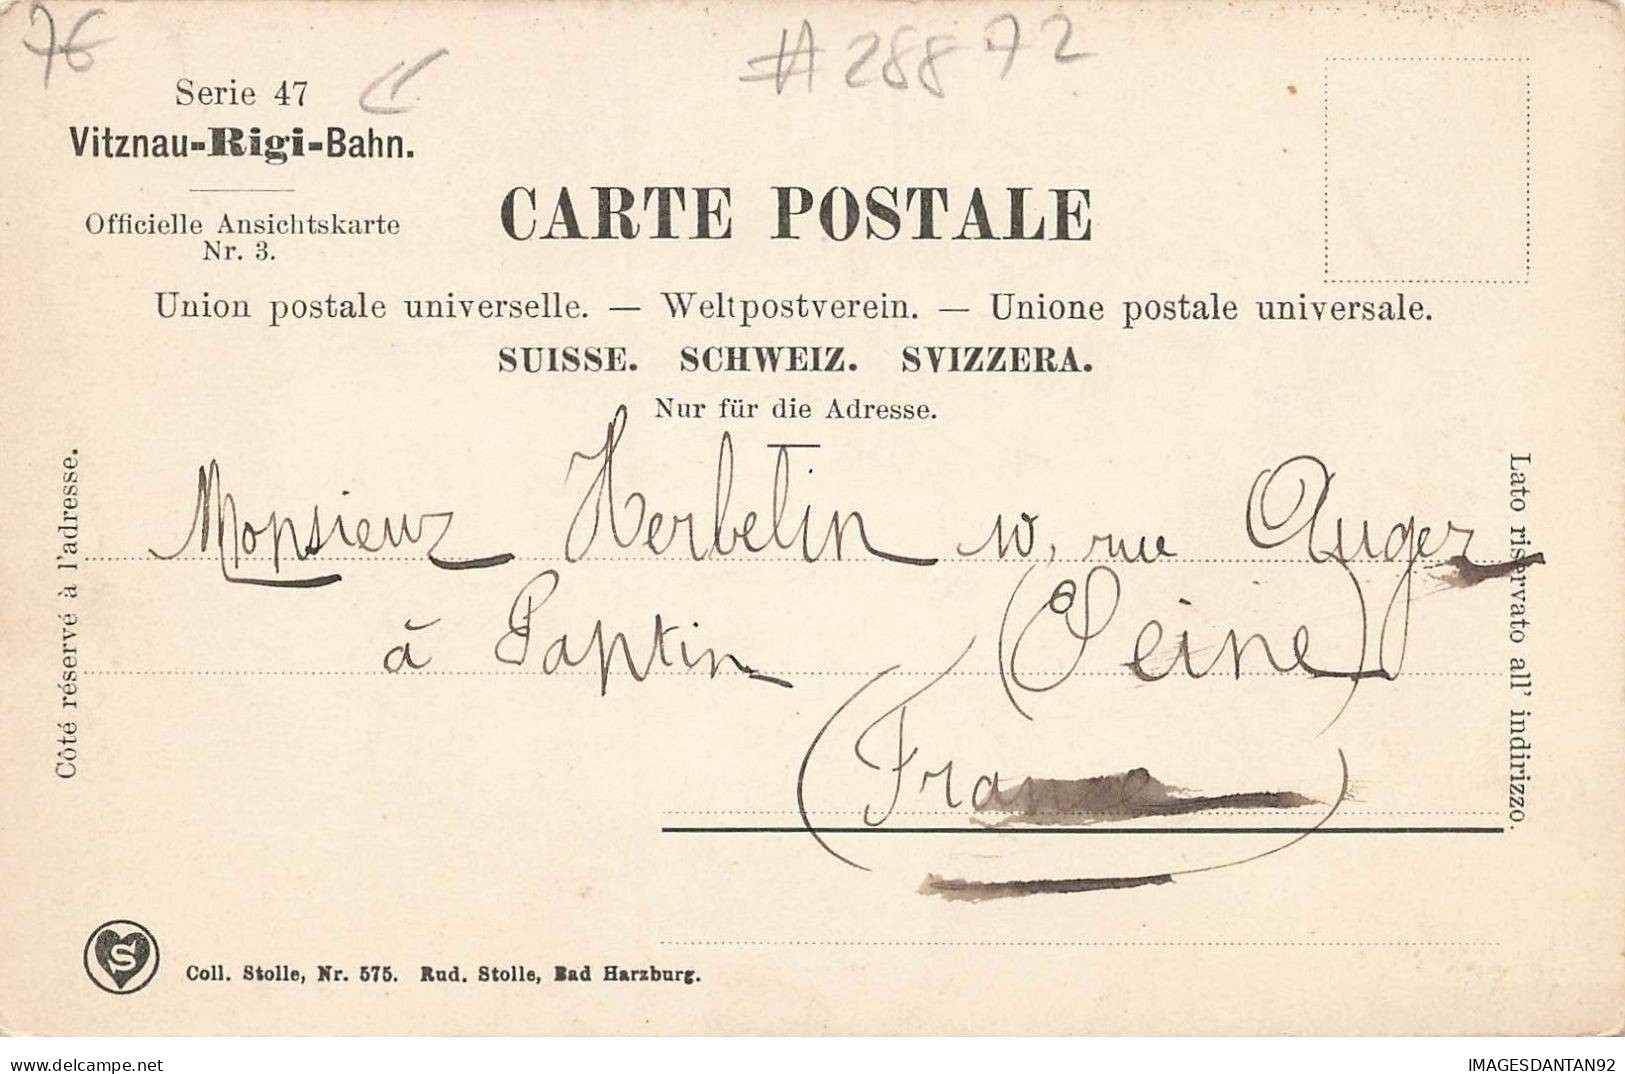 76
#28872
Serie 47
Vitznau-Rigi-Bahn.
Officielle Ansichtskarte
Nr. 3.
CARTE POSTALE
Union postale universelle. — Weltpostverein. — Unione postale universale.
SUISSE. SCHWEIZ. SVIZZERA.
Nur für die Adresse.
Côté réservé à l'adresse.
Lato riservato all' indirizzo.
Monsieur Herbelin 10, rue Auger
à Pantin (Seine)
(France)
S
Coll. Stolle, Nr. 575. Rud. Stolle, Bad Harzburg.
delcampe.net
IMAGESDANTAN92